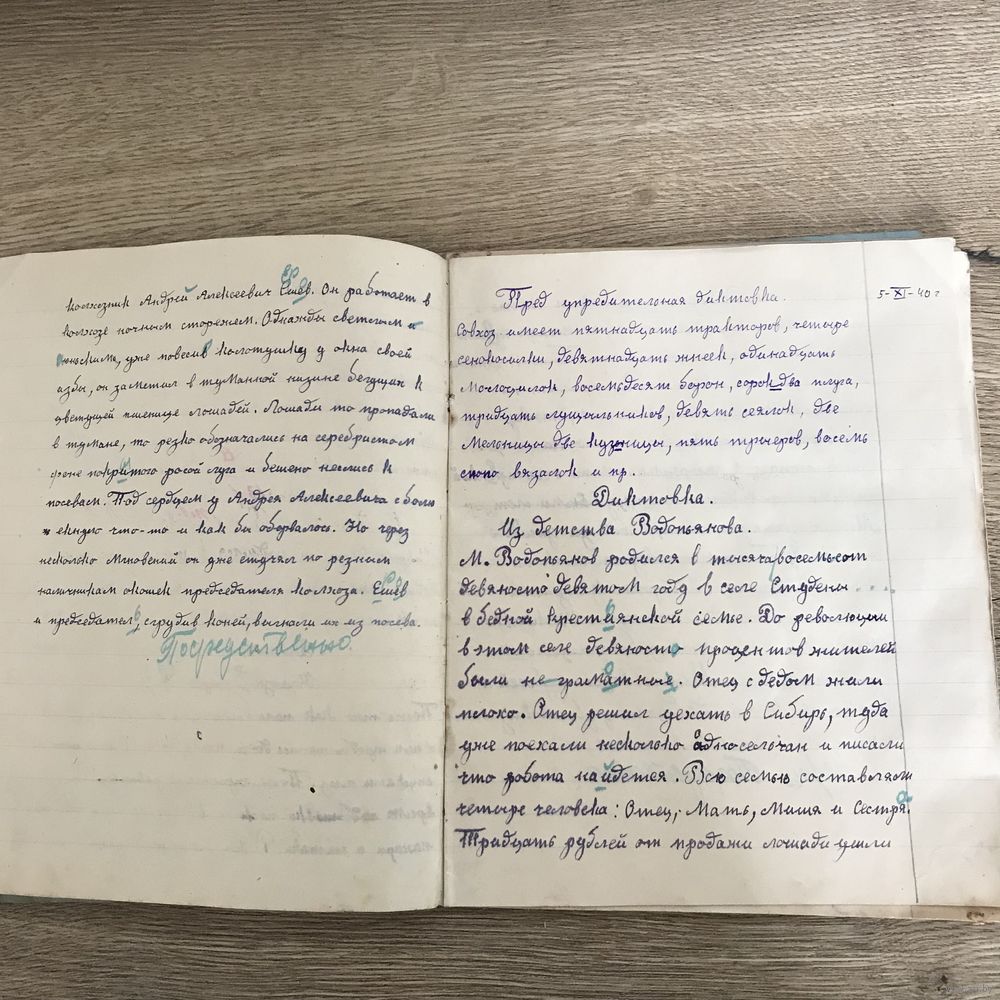 колхозник Андрей Алексеевич Ешёв. Он работает в
колхозе ночным сторожем. Однажды светлым и
июньским, уже повесив колотушку у окна своей
азбы, он заметил в туманной низине бегущих к
цветущей пшенице лошадей. Лошади то пропадали
в тумане, то резко обозначались на серебристом
фоне покрытого росой луга и бешено неслись к
посевам. Под сердцем у Андрея Алексеевича с болью
екнуло что-то и как бы оборвалось. Но через
несколько мгновений он уже стучал по резным
наличникам окошек председателя колхоза. Ешёв
и председатель, сгрудив коней, выгнали их из посева.
Посредственно.
Пред упредительная диктовка.
5-XI-40г
Совхоз имеет пятнадцать тракторов, четыре
сенокосилки, девятнадцать жнеек, одинадцать
молотилок, восемьдесят борон, сорок два плуга,
тридцать лущильников, девять сеялок, две
мельницы две кузницы, пять триеров, восемь
снопо вязалок и пр.
Диктовка.
Из детства Водопьянова.
М. Водопьянов родился в тысяча восемьсот
девяносто девятом год в селе Студено ....
в бедной крестьянской семье. До революции
в этом селе девяносто процентов жителей
были не граматные. Отец с дедом жили
плохо. Отец решил уехать в Сибирь, туда
уже поехали несколько односельчан и писали
что работа найдется. Всю семью составляли
четыре человека: Отец, Мать, Миша и Сестра.
Тридцать рублей от продажи лошади ушли